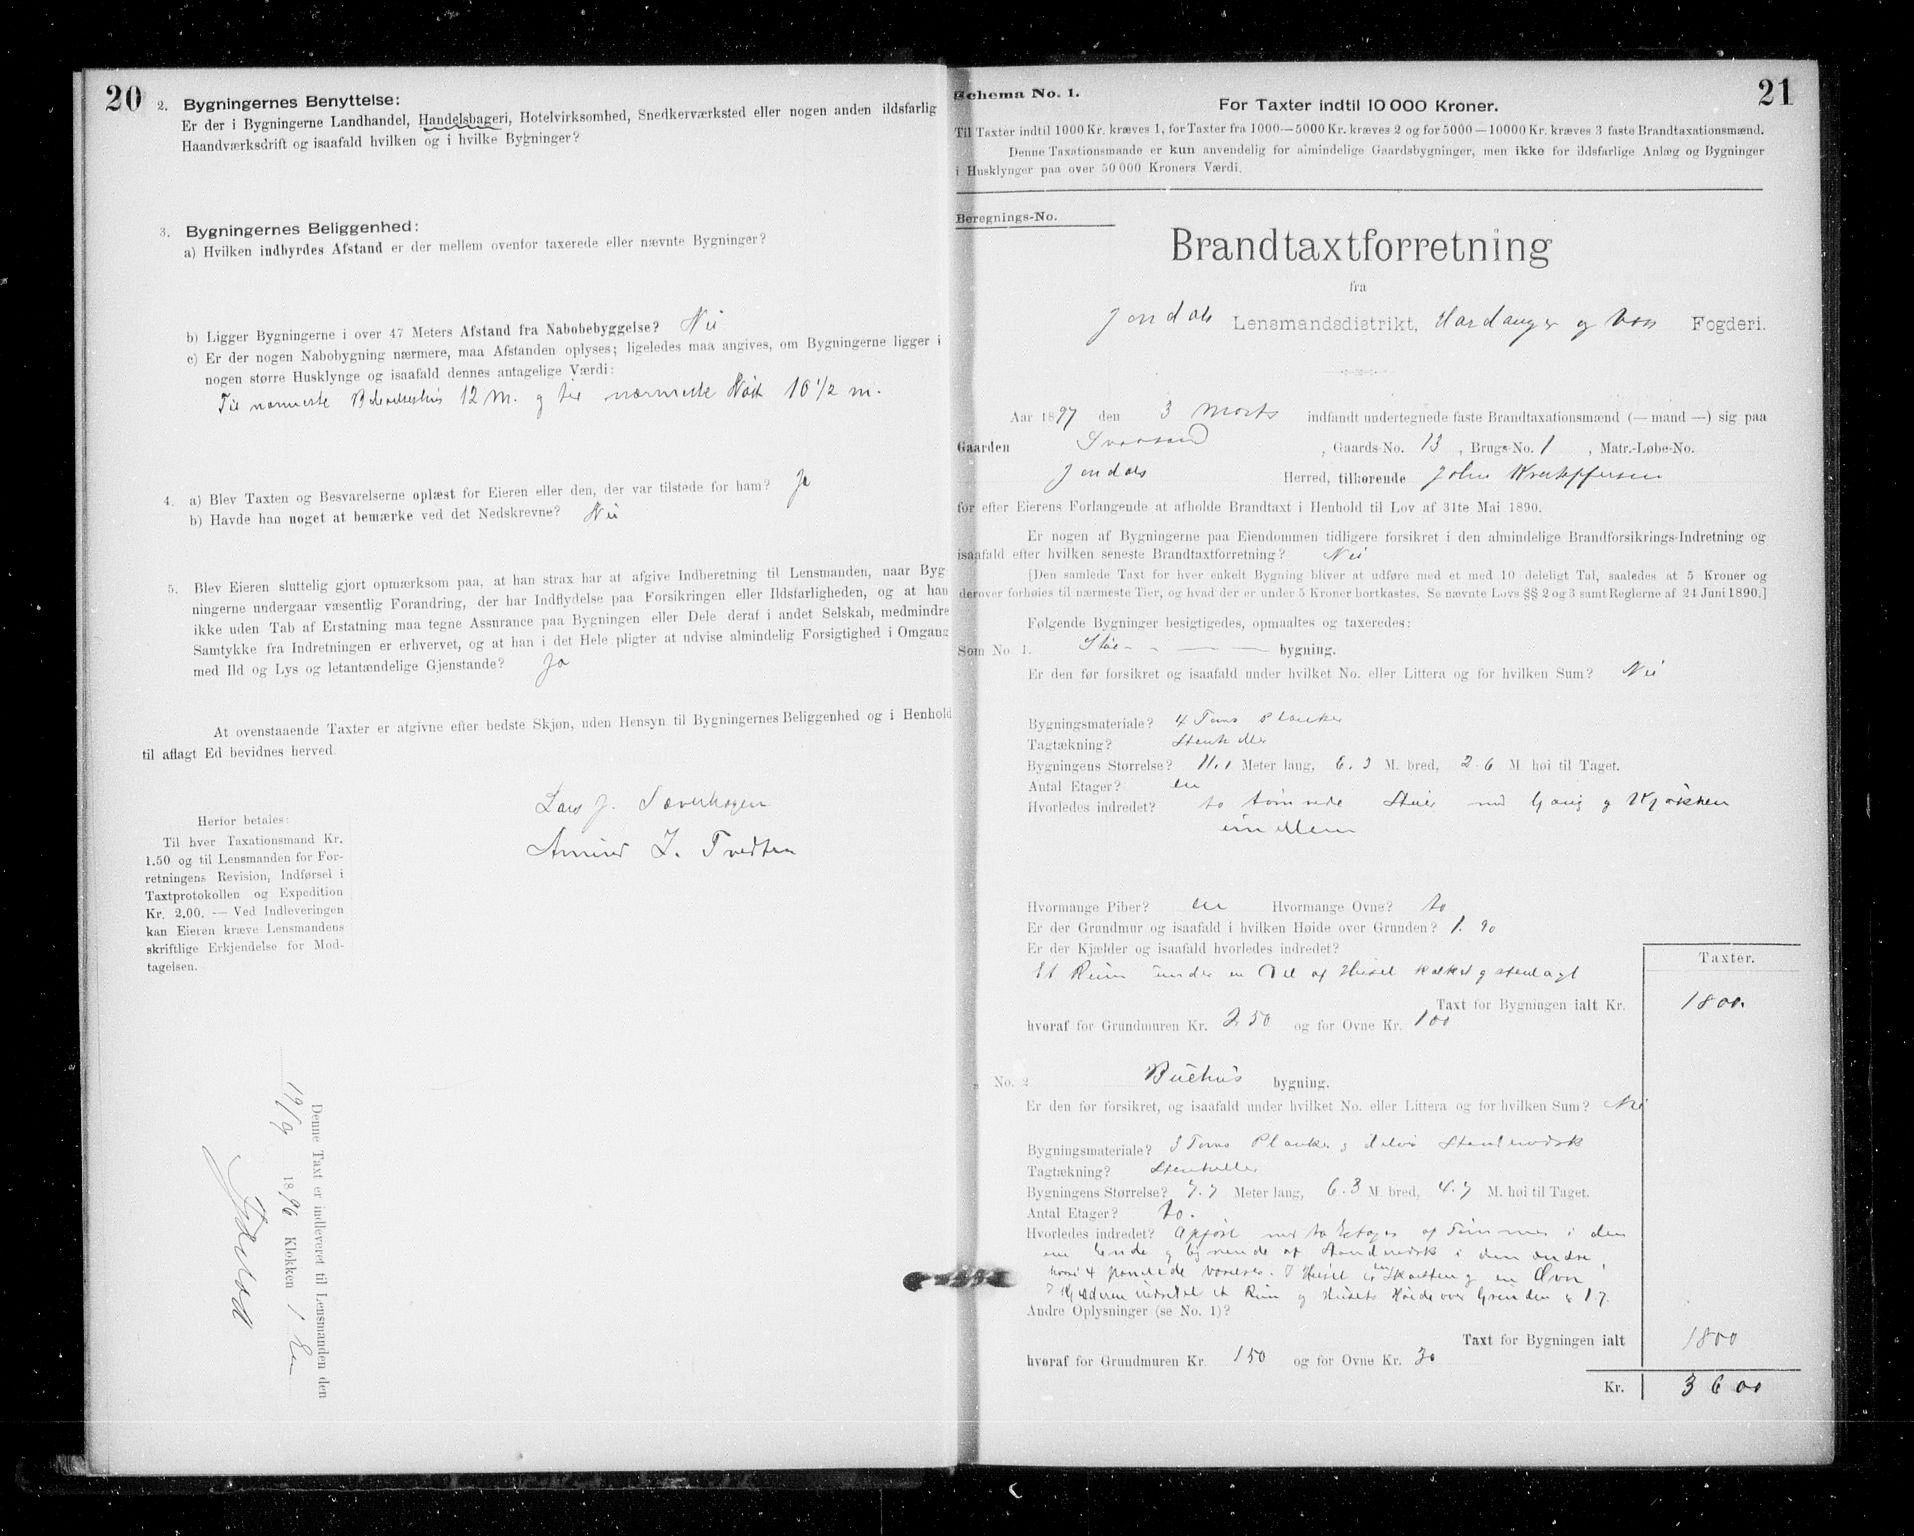 20
2. Bygningernes Benyttelse:
Er der i Bygningerne Landhandel, Handelsbageri, Hotelvirksomhed, Snedkerværksted eller nogen anden ildsfarlig
Haandværksdrift og isaafald hvilken og i hvilke Bygninger?
3. Bygningernes Beliggenhed:
a) Hvilken indbyrdes Afstand er der mellem ovenfor taxerede eller nævnte Bygninger?
b) Ligger Bygningerne i over 47 Meters Afstand fra Nabobebyggelse? Nei
c) Er der nogen Nabobygning nærmere, maa Afstanden oplyses; ligeledes maa angives, om Bygningerne ligger i
nogen større Husklynge og isaafald dennes antagelige Værdi:
Til nærmeste 12 M. og til nærmeste Nøst 10 1/2 m.
4. a) Blev Taxten og Besvarelserne oplæst for Eieren eller den, der var tilstede for ham? Ja
b) Havde han noget at bemærke ved det Nedskrevne? Nei
5. Blev Eieren sluttelig gjort opmærksom paa, at han strax har at afgive Indberetning til Lensmanden, naar Byg-
ningerne undergaar væsentlig Forandring, der har Indflydelse paa Forsikringen eller Ildsfarligheden, og at han
ikke uden Tab af Erstatning maa tegne Assurance paa Bygningen eller Dele deraf i andet Selskab, medmindre
Samtykke fra Indretningen er erhvervet, og at han i det Hele pligter at udvise almindelig Forsigtighed i Omgang
med Ild og Lys og letantændelige Gjenstande? Ja
At ovenstaaende Taxter er afgivne efter bedste Skjøn, uden Hensyn til Bygningernes Beliggenhed og i Henhold
til aflagt Ed bevidnes herved.
Lars J. Sæverhagen
J. Tvedten
Herfor betales:
Til hver Taxationsmand Kr.
1.50 og til Lensmanden for For-
retningens Revision, Indførsel i
Taxtprotokollen og Expedition
Kr. 2.00. — Ved Indleveringen
kan Eieren kræve Lensmandens
skriftlige Erkjendelse for Mod-
tagelsen.
Denne Taxt er indleveret til Lensmanden den
1896 Klokken 1 Em
21
Schema No. 1.
For Taxter indtil 10 000 Kroner.
Til Taxter indtil 1000 Kr. kræves 1, for Taxter fra 1000—5000 Kr. kræves 2 og for 5000—10000 Kr. kræves 3 faste Brandtaxationsmænd.
Denne Taxationsmaade er kun anvendelig for almindelige Gaardsbygninger, men ikke for ildsfarlige Anlæg og Bygninger
i Husklynger paa over 50 000 Kroners Værdi.
Beregnings-No.
Brandtaxtforretning
fra
Jondals Lensmandsdistrikt, Hardanger og Voss Fogderi.
Aar 1897 den 3 Marts indfandt undertegnede faste Brandtaxationsmænd (— mand —) sig paa
Gaarden Svaasand, Gaards-No. 13, Brugs-No. 1, Matr.-Løbe-No.
Jondals Herred, tilhørende John
for efter Eierens Forlangende at afholde Brandtaxt i Henhold til Lov af 31te Mai 1890.
Er nogen af Bygningerne paa Eiendommen tidligere forsikret i den almindelige Brandforsikrings-Indretning og
isaafald efter hvilken seneste Brandtaxtforretning? Nei
[Den samlede Taxt for hver enkelt Bygning bliver at udføre med et med 10 deleligt Tal, saaledes at 5 Kroner og
derover forhøies til nærmeste Tier, og hvad der er under 5 Kroner bortkastes. Se nævnte Lovs §§ 2 og 3 samt Reglerne af 24 Juni 1890.]
Følgende Bygninger besigtigedes, opmaaltes og taxeredes:
Som No. 1. Stue- - — — bygning.
Er den før forsikret og isaafald under hvilket No. eller Littera og for hvilken Sum? Nei
Bygningsmateriale? 4 Toms Planker
Tagtækning? Stenheller
Bygningens Størrelse? 11.1 Meter lang, 6.3 M. bred, 2.6 M. høi til Taget.
Antal Etager? en
Hvorledes indredet? to tømrede Stuer med Gang og Kjøkken
imellem
Hvormange Piber? en Hvormange Ovne? to
Er der Grundmur og isaafald i hvilken Høide over Grunden? 1.90
Er der Kjælder og isaafald hvorledes indredet?
Et Rum under en Del af Huset kalket og stenlagt
Taxter.
Taxt for Bygningen ialt Kr. 1800.
hvoraf for Grundmuren Kr. 250 og for Ovne Kr. 100
„ No. 2 Buehus bygning.
Er den før forsikret, og isaafald under hvilket No. eller Littera og for hvilken Sum? Nei
Bygningsmateriale? 3 Toms Planker og delvis Stenderværk
Tagtækning? Stenheller
Bygningens Størrelse? 7.7 Meter lang, 6.3 M. bred, 4.7 M. høi til Taget.
Antal Etager? to.
Hvorledes indredet? Opført med to Etager af Tømmer i den
ene Ende og lignende af Stenderværk i den andre,
hvori 4 panelede Værelser. I Huset er en Skorsten og en Ovn
I Kjelderen indredet et Rum og Husets Høide over Grunden er 1.7.
Andre Oplysninger (se No. 1)?
Taxt for Bygningen ialt 1800
hvoraf for Grundmuren Kr. 150 og for Ovne Kr. 30
Kr. 3600